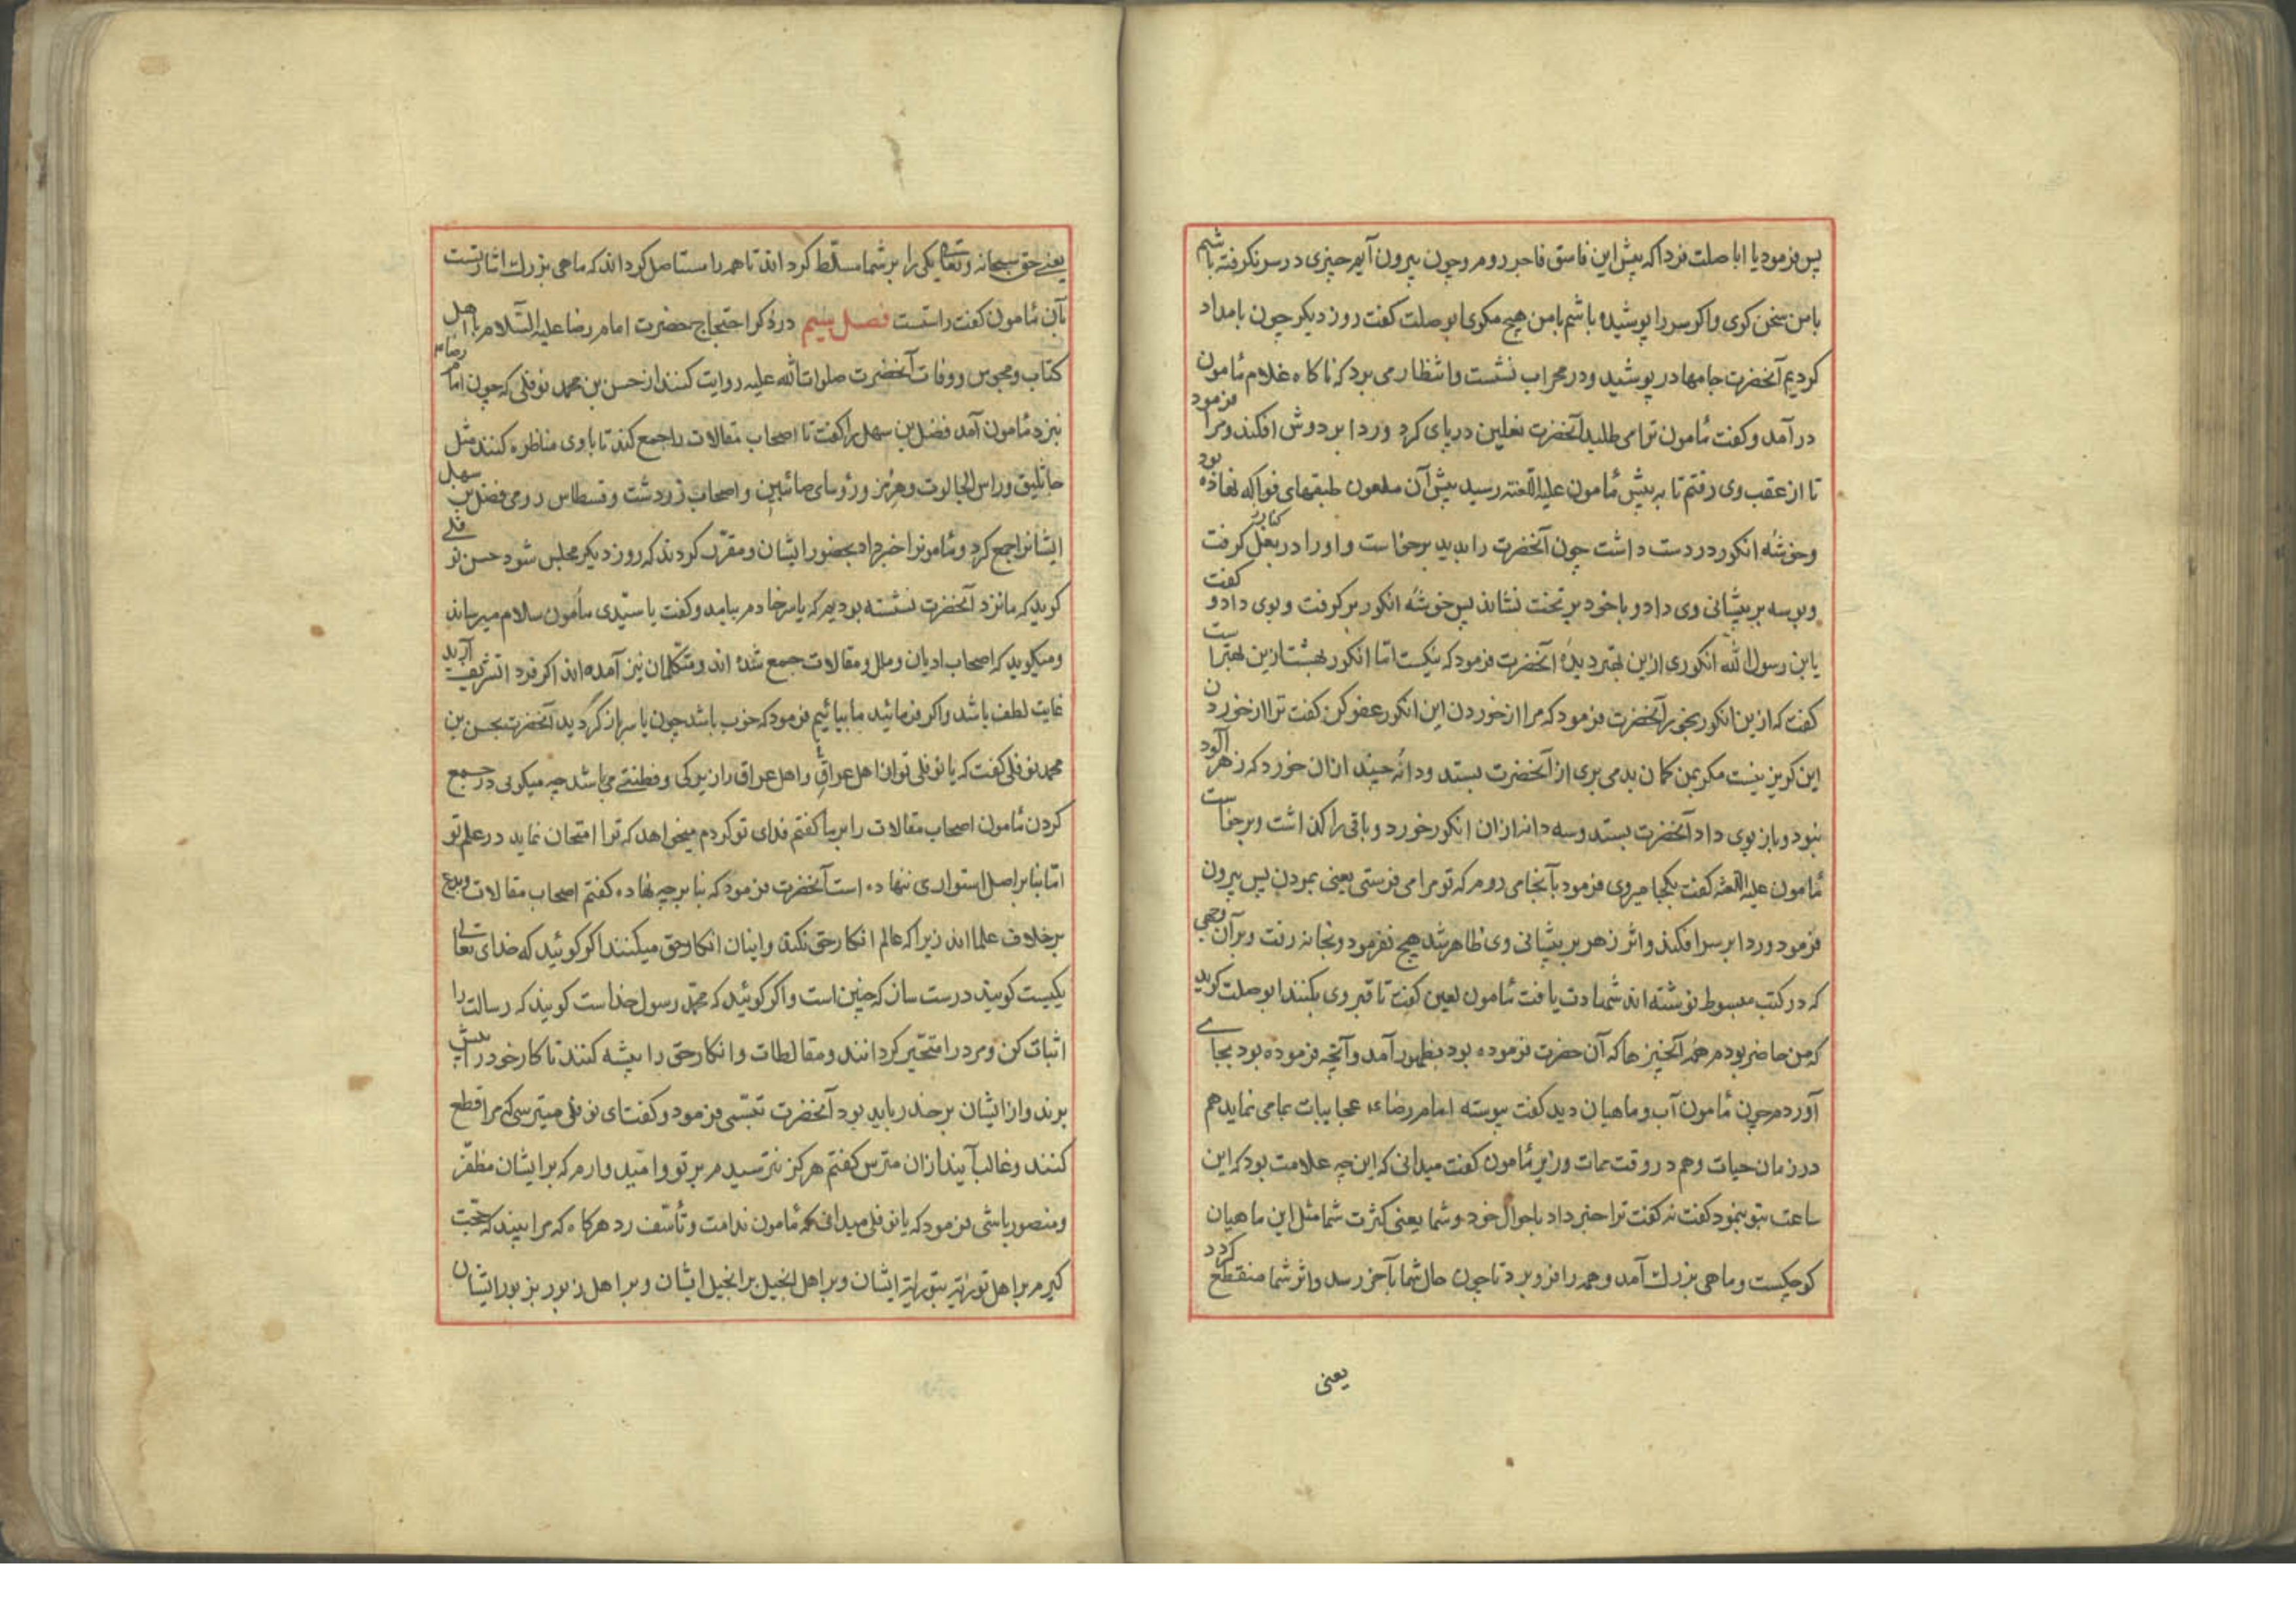 پس فرمود یا اباصلت فردا که پیش این فاسق فاجر روم و چون بیرون آیم چیزی در سر نکرفته باشم
با من سخن کوی واکر سر را پوشیده باشم با من هیچ مکوی ابوصلت کفت روز دیکر چون بامداد
کردیم آنحضرت جامها در پوشید و در محراب نشست وانتظار می برد که ناکاه غلام مأمون
در آمد وکفت مأمون ترا می طلبد آنحضرت نعلین در پای کرد وردا بر دوش افکند ومرا فرمود
تا از عقب وی رفتم تا به پیش مأمون علیه اللعنته رسید پیش آن ملعون طبقهای فواکه نهاده بود
وخوشه انکور در دست داشت چون آنحضرت را بدید برخواست واو را در بغل کرفت
وبوسه بر پیشانی وی داد وباخود بر تخت نشاند پس خوشه انکور برکرفت وبوی داد وکفت
یابن رسول الله انکوری ازین بهتر دیدۀ آنحضرت فرمود که نیکست اما انکور بهشت ازین بهتراست
کفت که ازین انکور بخور آنحضرت فرمود که مرا از خوردن این انکور عفو کن کفت ترا از خوردن
این کریز نیست مکر بمن کمان بد می بری از آنحضرت بستد ودانۀ چند ازان خورد که زهرآلود
نبود وباز بوی داد آنحضرت بستد وسه دانه ازان انکور خورد وباقی را کذاشت وبرخاست
مأمون علیه اللعنه کفت بکجا میروی فرمود بآنجا می روم که تو مرا می فرستی یعنی بمردن پس بیرون
فرمود وردا بر سر افکند واثر زهر بر پیشانی وی ظاهر شد هیچ نفرمود وبخانه رفت وبرآن وجهی
که در کتب مبسوط نوشته اند شهادت یافت مأمون لعین کفت تا قبر وی بکنند ابوصلت کوید
که من حاضر بودم همه آنچیزها که آن حضرت فرموده بود بظهور آمد وآنچه فرموده بود بجای
آوردم چون مأمون آب وماهیان دید کفت پیوسته امام رضا ع عجایبات بمامی نماید هم
در زمان حیات وهم در وقت ممات وزیر مأمون کفت میدانی که این چه علامت بود که این
ساعت بتو بنمود کفت نه کفت ترا خبر داد باحوال خود وشما یعنی کثرت شما مثل این ماهیان
کوچکست وماهی بزرك آمد وهمه را فرو برد تا چون حال شما بآخر رسد واثر شما منقطع کردد
یعنی
یعنی حق سبحانه وتعالی یکی را بر شما مسلط کرداند تا همه را مستاصل کرداند که ماهی بزرك اشارتست
بآن مأمون کفت راستست فصل سیم در ذکر احتجاج حضرت امام رضا علیه السلام با اهل
کتاب ومجوس ووفات آنحضرت صلوات الله علیه روایت کنند از حسن بن محمد نوفلی که چون امام رضا ع
بنزد مأمون آمد فضل بن سهل را کفت تا اصحاب مقالات را جمع کند تا باوی مناظره کنند مثل
جاثلیق وراس الجالوت وهرنز ورؤسای صائبین واصحاب زردشت وقسطاس رومی فضل بن سهل
ایشانرا جمع کرد ومأمونرا خبر داد بحضور ایشان ومقرر کردند که روز دیکر مجلس شود حسن نوفلی
کوید که ما نزد آنحضرت نشسته بودیم که یاسر خادم بیامد وکفت یا سیدی مأمون سلام میرساند
ومیکوید که اصحاب ادیان وملل ومقالات جمع شده اند ومتکلمان نیز آمده اند اکر فردا تشریف آرید
غایت لطف باشد واکر فرمائید ما بیائیم فرمود که خوب باشد چون یاسر باز کردید آنحضرت بحسن بن
محمد نوفلی کفت که یا نوفلی تو از اهل عراقی واهل عراق را زیرکی وفطنتی می باشد چه میکویی در جمع
کردن مأمون اصحاب مقالات را بر ما کفتم فدای تو کردم میخواهد که ترا امتحان نماید در علم تو
اما بنا بر اصل استواری ننهاده است آنحضرت فرمود که بنا بر چه نهاده کفتم اصحاب مقالات وبدع
بر خلاف علمااند زیرا که عالم انکار حق نکند واینان انکار حق میکنند اکر کوئید که خدای تعالی
یکیست کویند درست سان که چنین است واکر کوئید که محمد رسول خداست کویند که رسالت را
اثبات کن ومرد را متحیر کردانند ومغالطات وانکار حق را پیشه کنند تا کار خود را پیش
برند واز ایشان بر حذر باید بود آنحضرت تبسمی فرمود وکفت ای نوفلی میترسی که مرا قطع
کنند وغالب آیند ازان مترس کفتم هرکز نترسیدم بر تو وامید وارم که بر ایشان مظفر
ومنصور باشی فرمود که یا نوفلی میدانی که مأمون ندامت وتأسف رد هرکاه که مرا بیند که حجت
کیرم بر اهل توریة بتوریة ایشان وبر اهل انجیل بر انجیل ایشان وبر اهل زبور بزبور ایشان